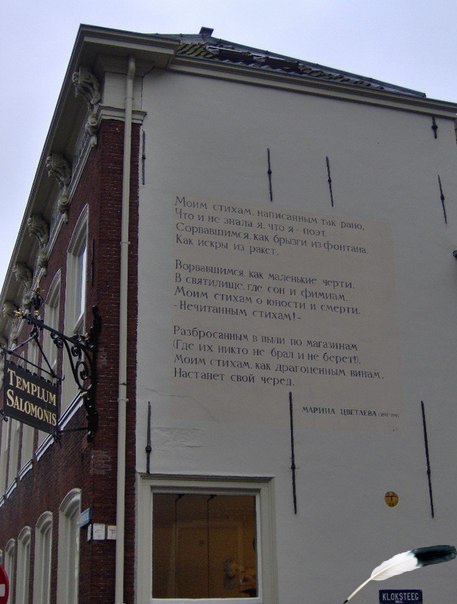 Моим стихам, написанным так рано,
Что и не знала я, что я - поэт,
Сорвавшимся, как брызги из фонтана,
Как искры из ракет,
Ворвавшимся, как маленькие черти,
В святилище, где сон и фимиам,
Моим стихам о юности и смерти,
- Нечитанным стихам! -
Разбросанным в пыли по магазинам
(Где их никто не брал и не берет),
Моим стихам, как драгоценным винам,
Настанет свой черед.
МАРИНА ЦВЕТАЕВА
TEMPLUM
SALOMONIS
KLOKSTEEG